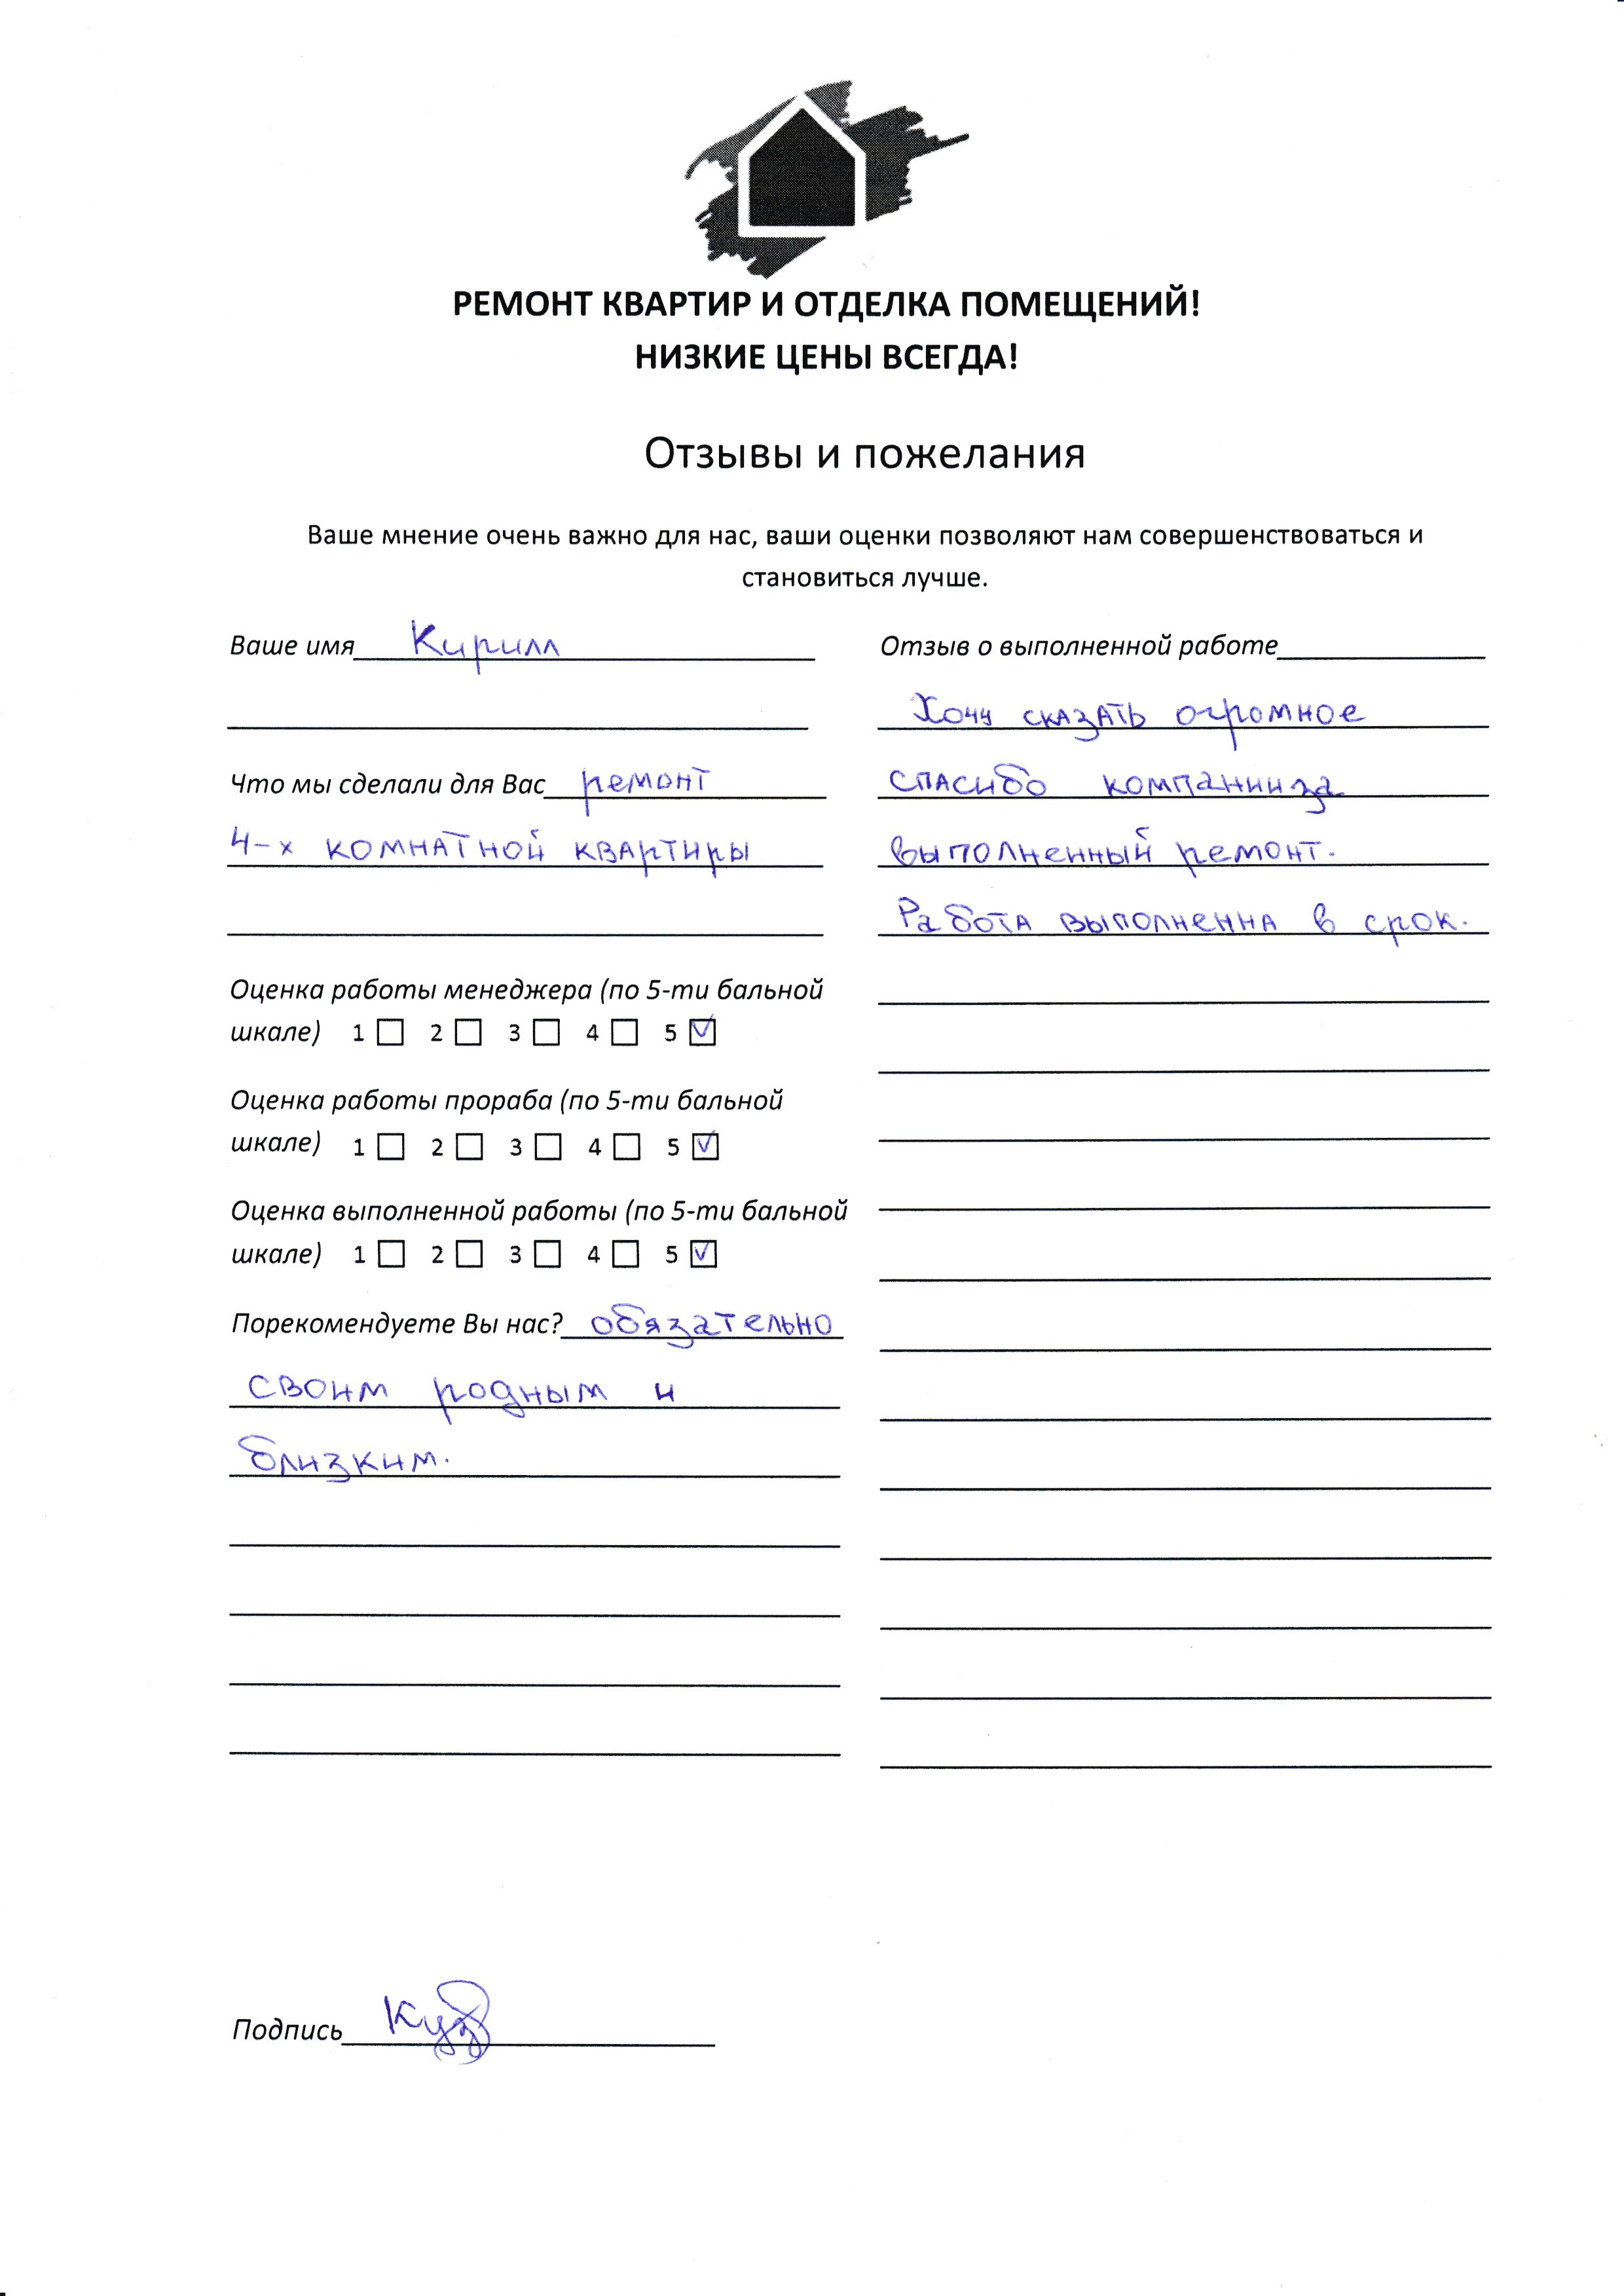 РЕМОНТ КВАРТИР И ОТДЕЛКА ПОМЕЩЕНИЙ!
НИЗКИЕ ЦЕНЫ ВСЕГДА!
Отзывы и пожелания
Ваше мнение очень важно для нас, ваши оценки позволяют нам совершенствоваться и
становиться лучше.
Ваше имя Кирилл
Что мы сделали для Вас ремонт
4-х комнатной квартиры
Оценка работы менеджера (по 5-ти бальной
шкале) 1 ☐ 2 ☐ 3 ☐ 4 ☐ 5 ☑
Оценка работы прораба (по 5-ти бальной
шкале) 1 ☐ 2 ☐ 3 ☐ 4 ☐ 5 ☑
Оценка выполненной работы (по 5-ти бальной
шкале) 1 ☐ 2 ☐ 3 ☐ 4 ☐ 5 ☑
Порекомендуете Вы нас? обязательно
своим родным и
близким.
Отзыв о выполненной работе
Хочу сказать огромное
спасибо компании за
выполненный ремонт.
Работа выполненна в срок.
Подпись